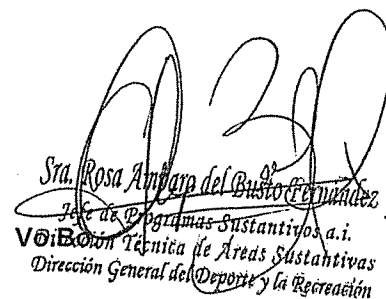 Sra. Rosa Amparo del Busto Fernández
Jefe de Programas Sustantivos a.i.
Vo.Bo.
Dirección Técnica de Áreas Sustantivas
Dirección General del Deporte y la Recreación